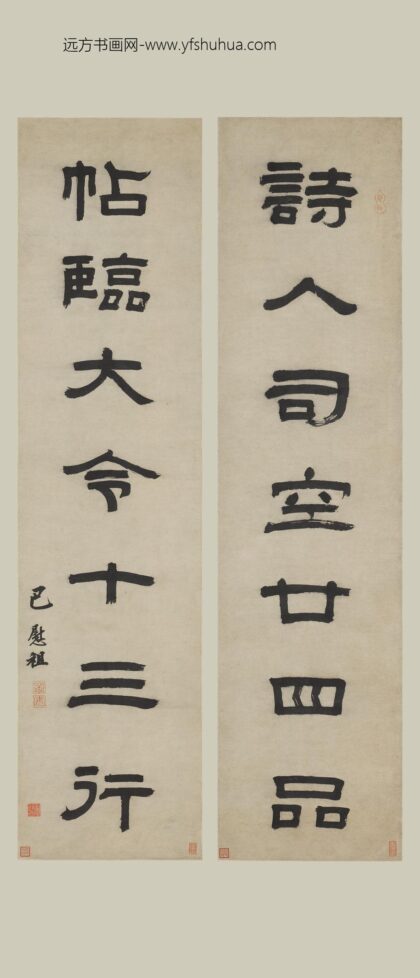 远方书画网-www.yfshuhua.com
詩人司空廿四品
帖臨大令十三行
巴慰祖